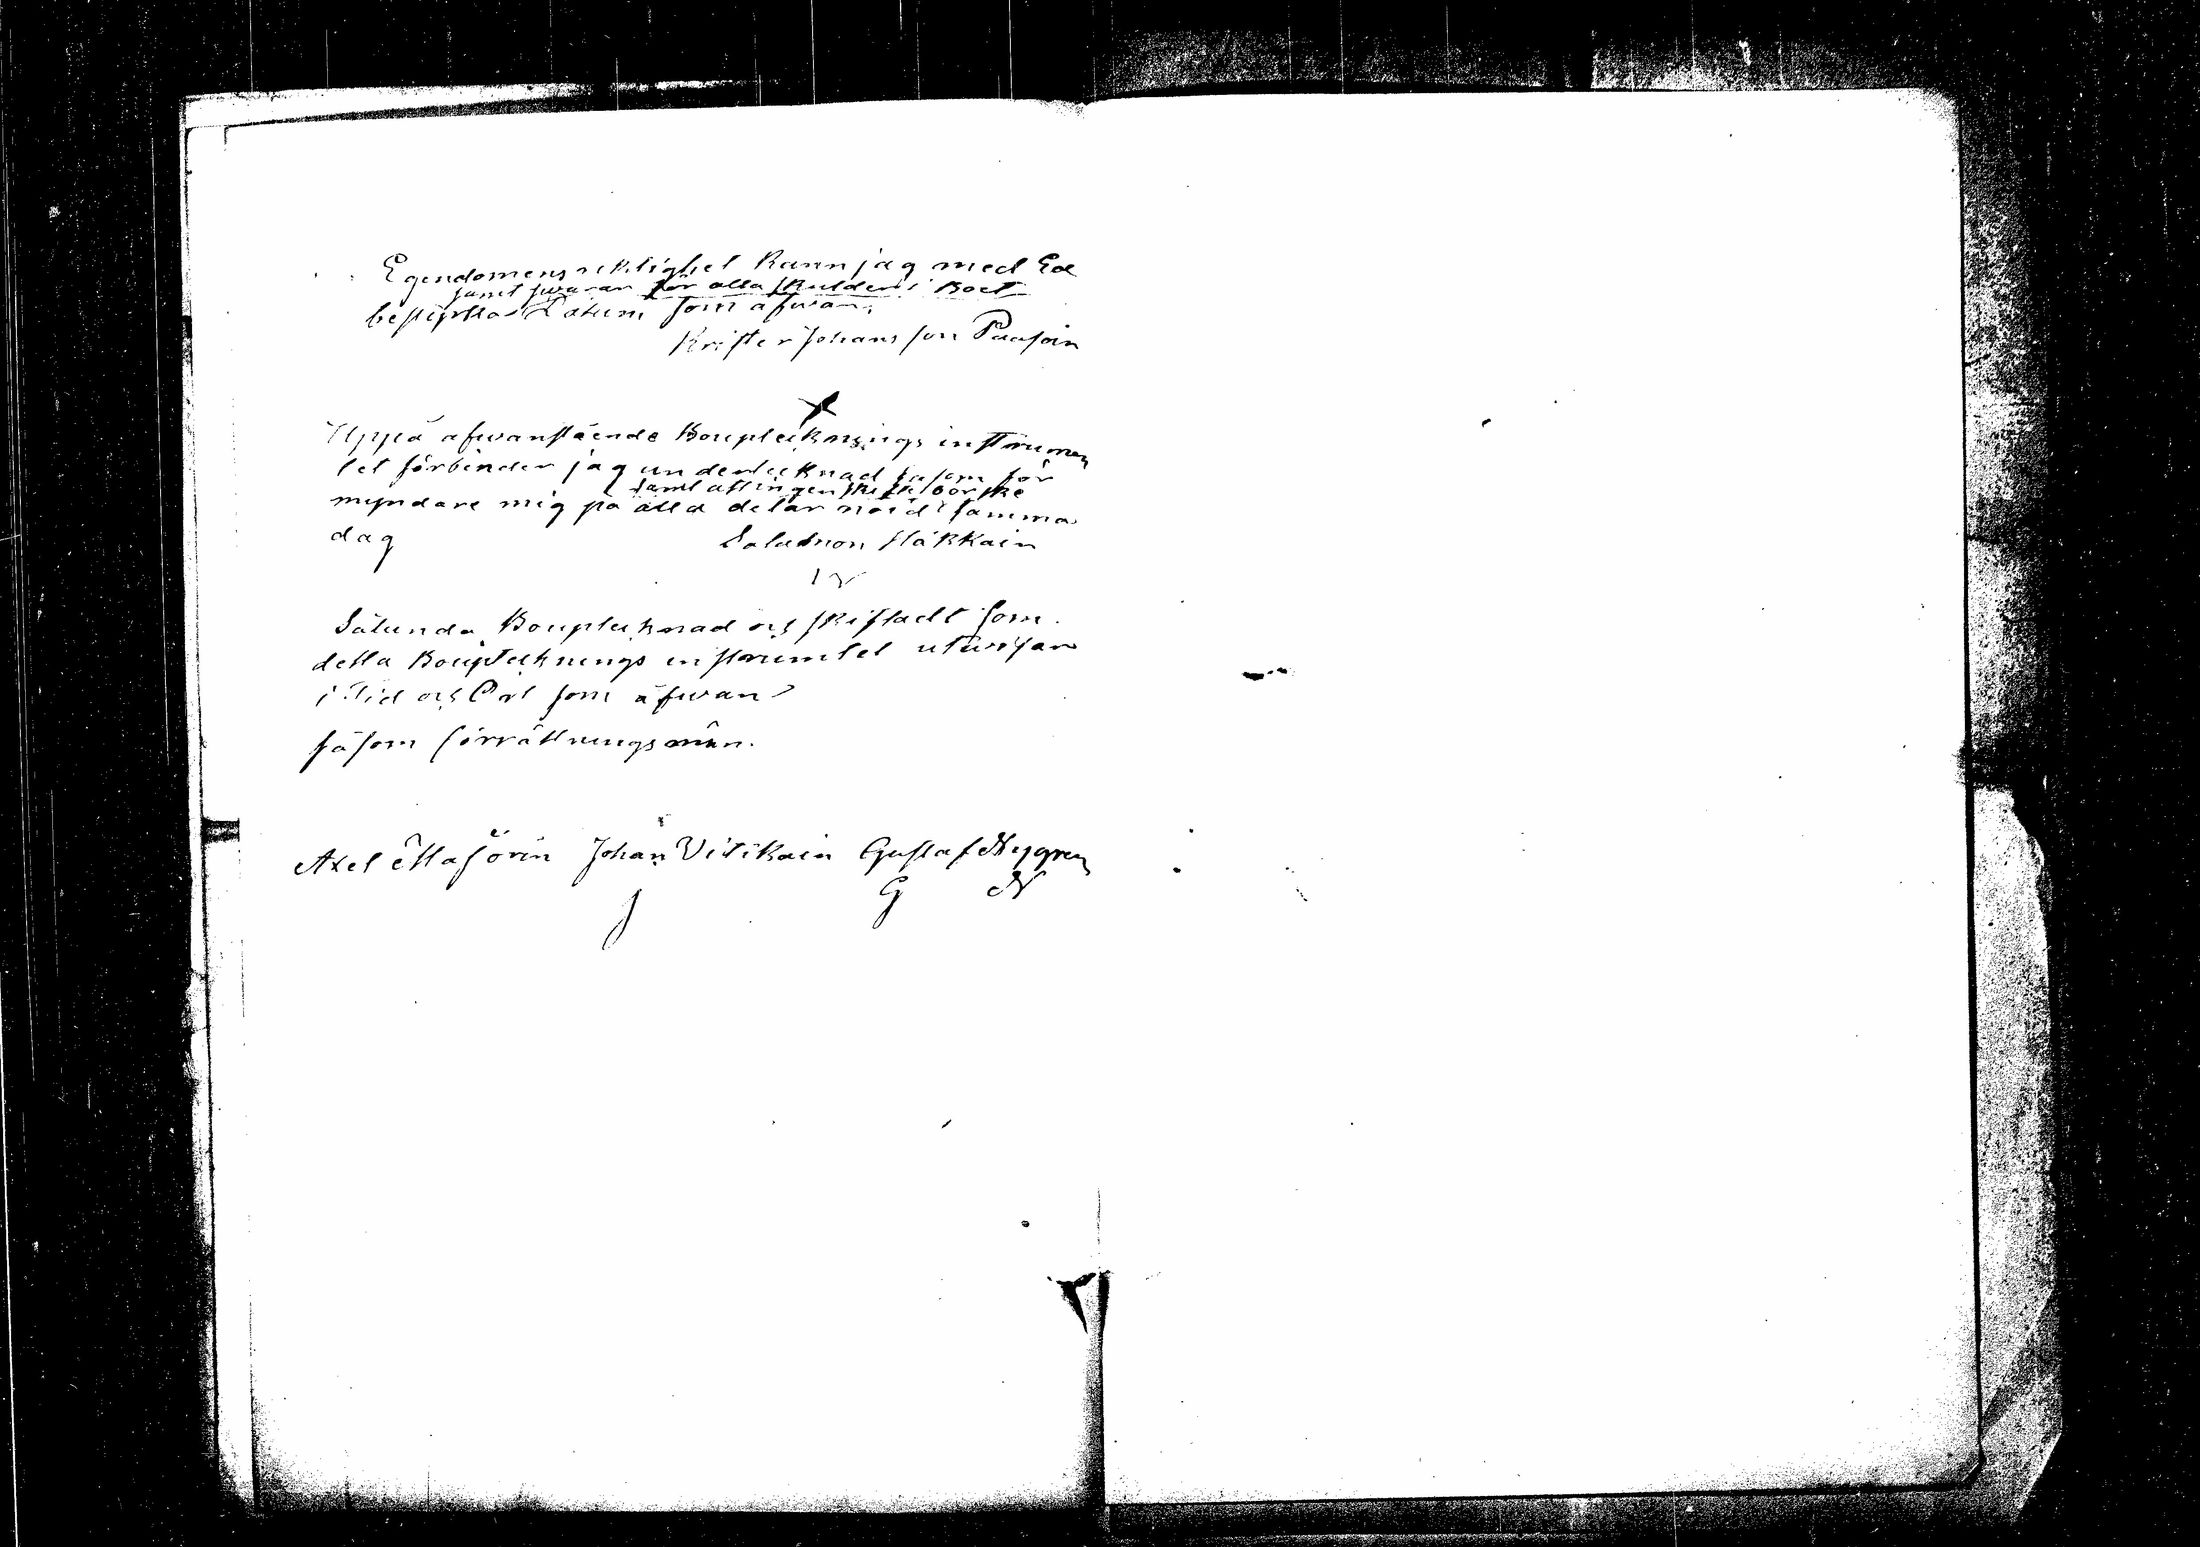 Egendomens riktighet kann jag med Ed
samt swarar för alla skulder i Boet
bestyrka Datum som åfwan.
Krister Johansson Paasoin
Uppå afwanstående Boupteiknings instrumen
tet förbinder jag undertecknad såsom för
samt att ingen
myndare mig på alla delar nöid samma
dag
Salomon Häkkain
Sålunda Boupteiknad och skiftadt som
detta Boupteiknings instrumtet utwisar
i Tid och Ort som åfwan
såsom förrättningsmän.
Axel Masörin Johan Vitikain Gustaf Nygren
J G N